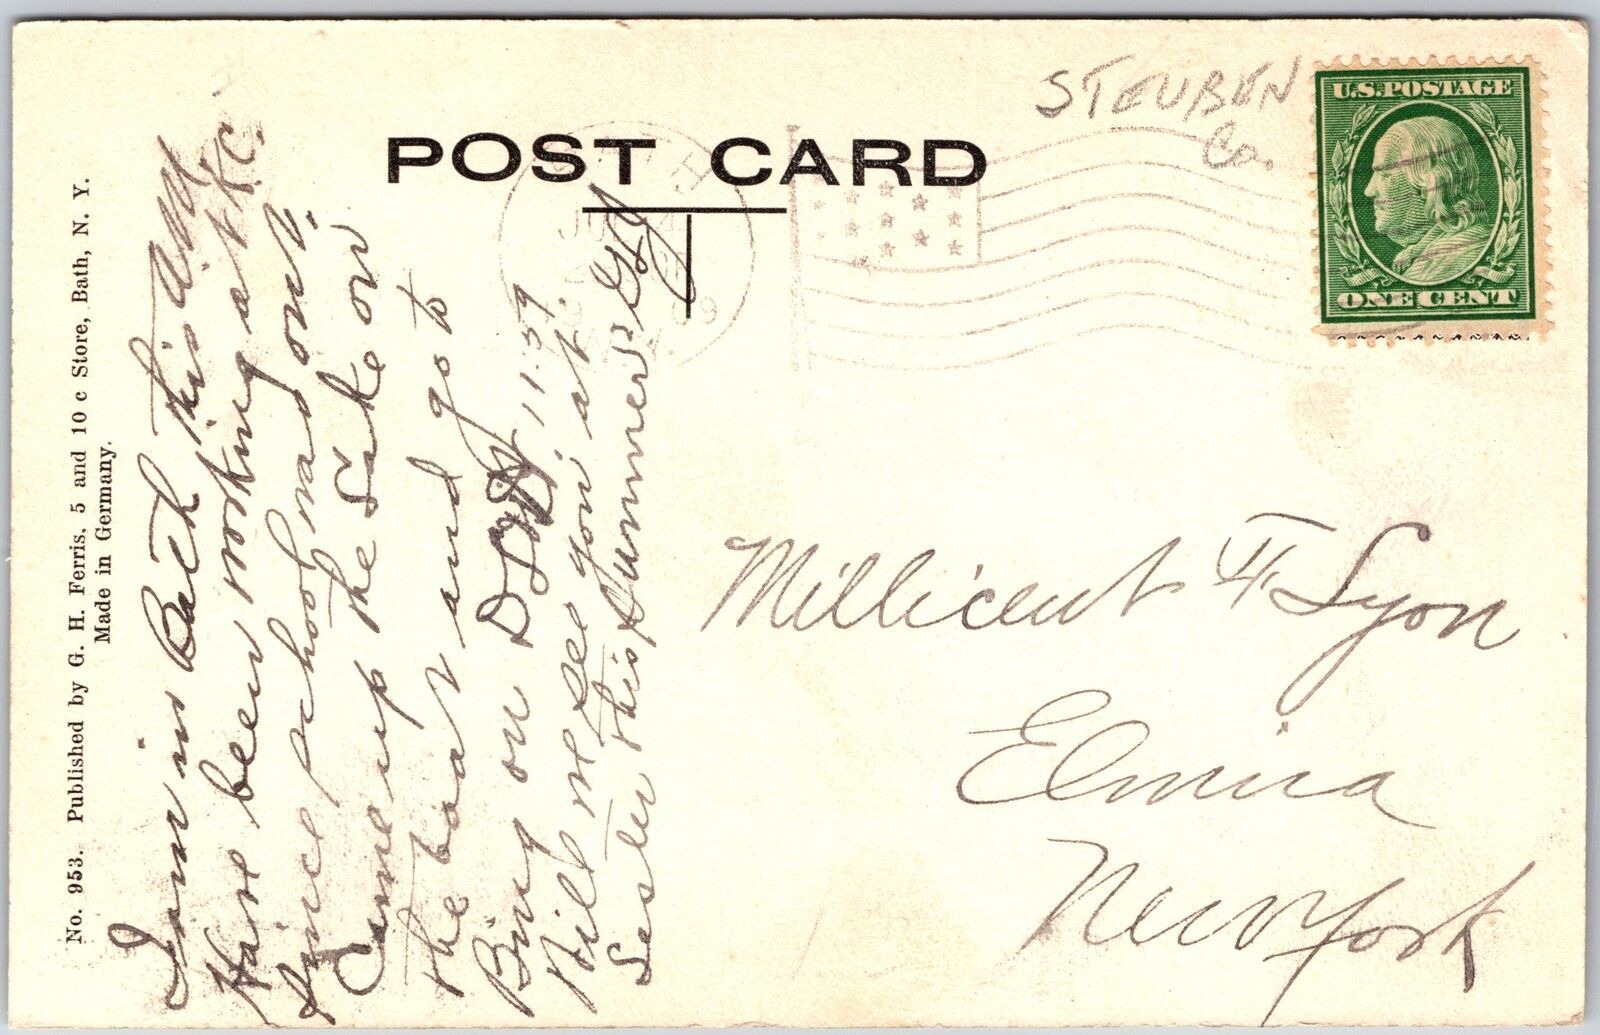 No. 953. Published by G. H. Ferris, 5 and 10 c Store, Bath, N. Y.
Made in Germany.
POST CARD
STEUBEN
Co.
U.S. POSTAGE
ONE CENT
I am in Bath this AM
Have been working at K.C.
since school was out.
Came up the Lake on
the boat and go to
Bing on 11.59.
Will we see you at
this summer
Millicent H. Lyon
Elmira
New York